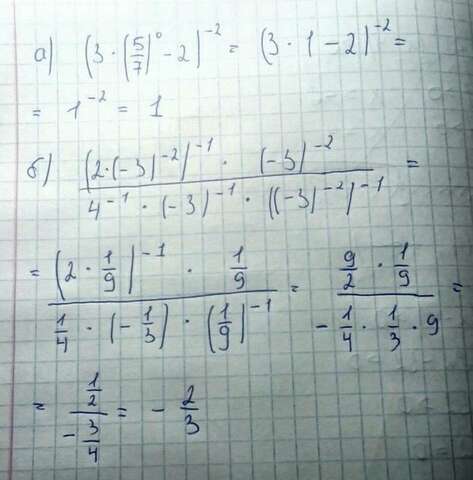 а) (3 · (5/7)⁰ − 2)⁻² = (3 · 1 − 2)⁻² =
= 1⁻² = 1
б) ((2·(−3)⁻²)⁻¹ · (−3)⁻²) / (4⁻¹ · (−3)⁻¹ · ((−3)⁻²)⁻¹) =
= ((2 · 1/9)⁻¹ · 1/9) / (1/4 · (−1/3) · (1/9)⁻¹) = (9/2 · 1/9) / (− 1/4 · 1/3 · 9) =
= (1/2) / (− 3/4) = − 2/3